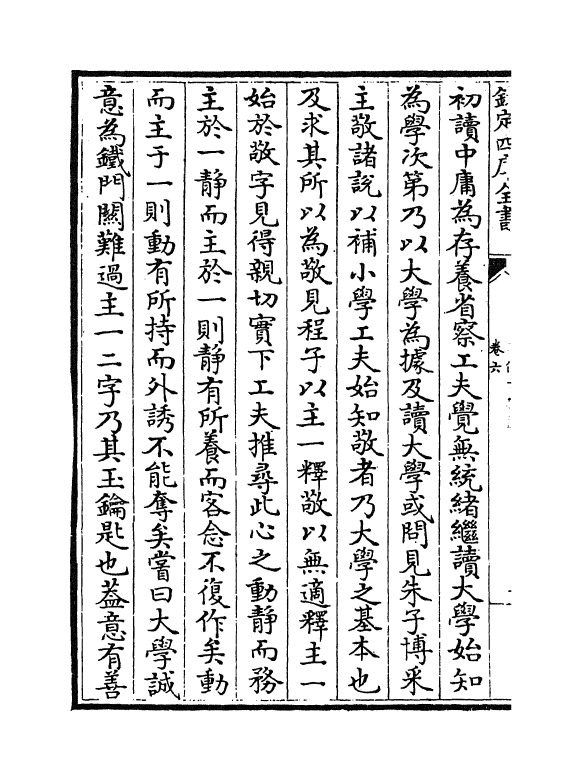 欽定四庫全書
卷六
初讀中庸為存養省察工夫覺無統緒繼讀大學始知
為學次第乃以大學為據及讀大學或問見朱子博采
主敬諸說以補小學工夫始知敬者乃大學之基本也
及求其所以為敬見程子以主一釋敬以無適釋主一
始於敬字見得親切實下工夫推尋此心之動靜而務
主於一靜而主於一則靜有所養而客念不復作矣動
而主于一則動有所持而外誘不能奪矣嘗曰大學誠
意為鐵門關難過主一二字乃其玉鑰匙也葢意有善